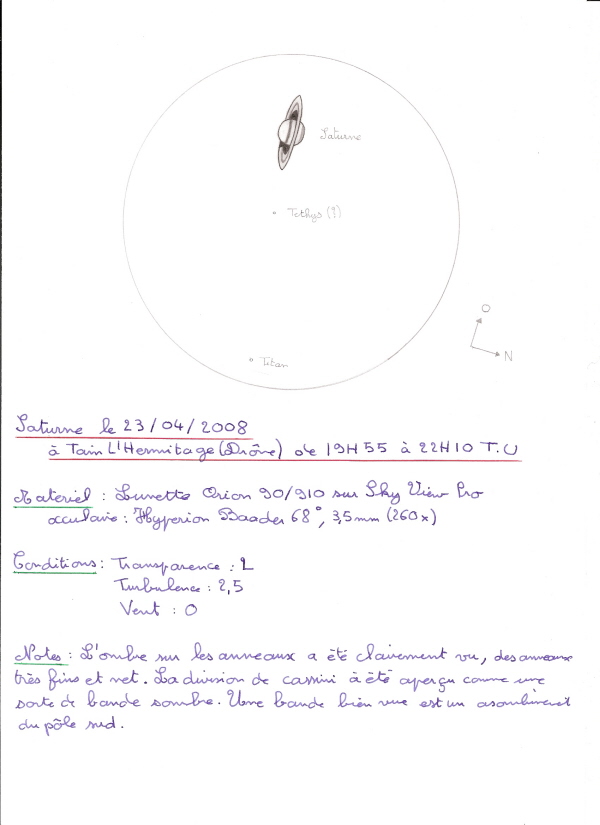 Saturne
Tethys (?)
Titan
O
N
Saturne le 23/04/2008
à Tain L'Hermitage (Drôme) de 19H55 à 22H10 T.U
Materiel : Lunette Orion 90/910 sur Sky View Pro
occulaire : Hyperion Baader 68°, 3,5mm (260x)
Conditions : Transparence : 2
Turbulence : 2,5
Vent : 0
Notes : L'ombre sur les anneaux a été clairement vu, des anneaux
très fins et net. La division de cassini à été aperçu comme une
sorte de bande sombre. Une bande bien vue est un
du pôle sud.